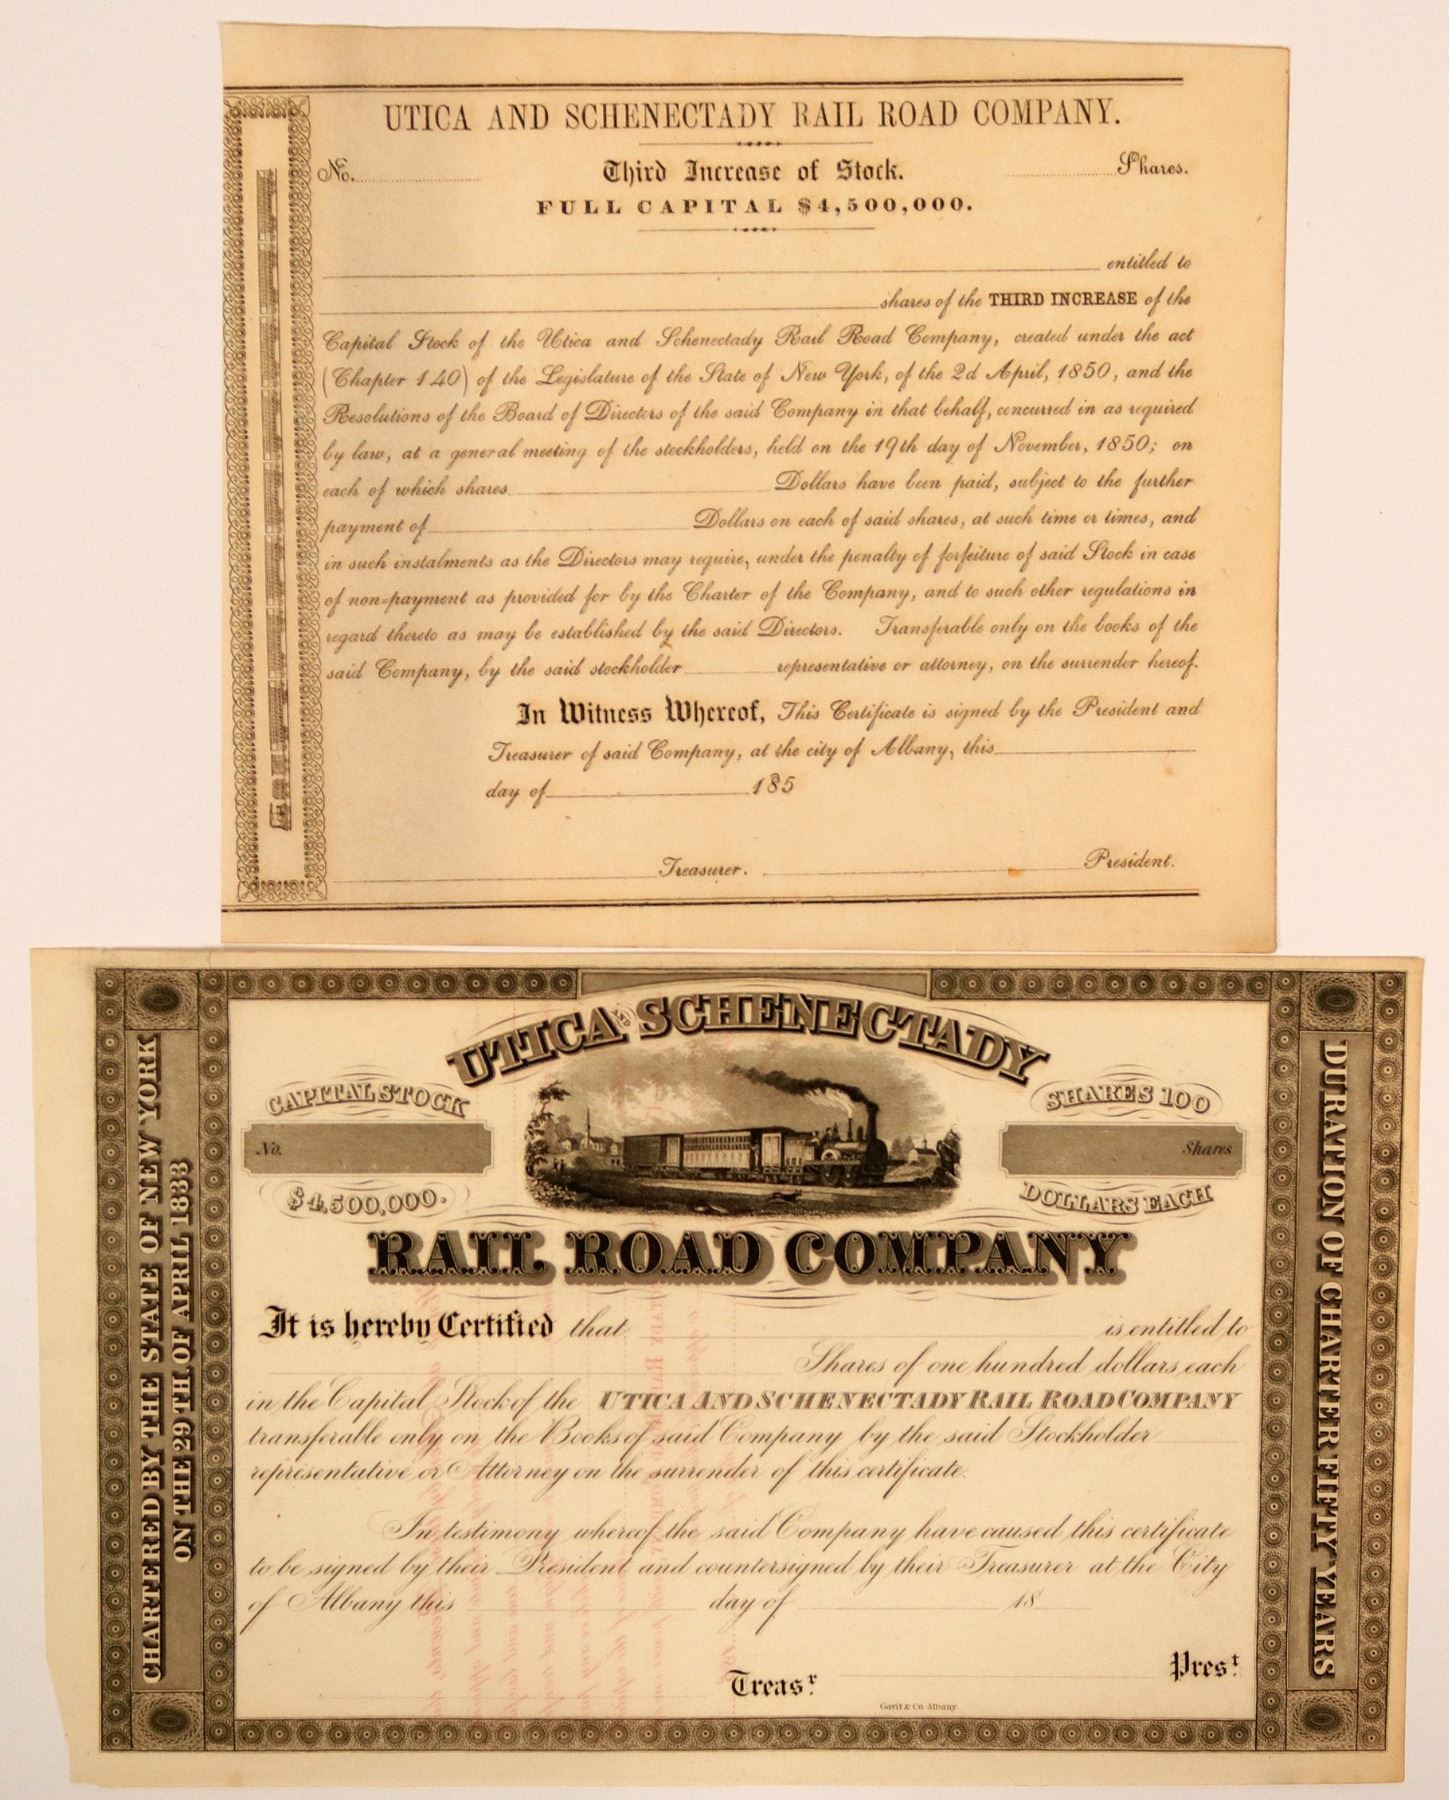 UTICA AND SCHENECTADY RAIL ROAD COMPANY.
No. Third Increase of Stock. Shares.
FULL CAPITAL $4,500,000.
entitled to
shares of the THIRD INCREASE of the
Capital Stock of the Utica and Schenectady Rail Road Company, created under the act
(Chapter 140) of the Legislature of the State of New York, of the 2d April, 1850, and the
Resolutions of the Board of Directors of the said Company in that behalf, concurred in as required
by law, at a general meeting of the stockholders, held on the 19th day of November, 1850; on
each of which shares Dollars have been paid, subject to the further
payment of Dollars on each of said shares, at such time or times, and
in such instalments as the Directors may require, under the penalty of forfeiture of said Stock in case
of non-payment as provided for by the Charter of the Company, and to such other regulations in
regard thereto as may be established by the said Directors. Transferable only on the books of the
said Company, by the said stockholder representative or attorney, on the surrender hereof.
In Witness Whereof, This Certificate is signed by the President and
Treasurer of said Company, at the city of Albany, this
day of 185
Treasurer. President.
CHARTERED BY THE STATE OF NEW YORK
ON THE 29TH OF APRIL 1833
UTICA AND SCHENECTADY
CAPITAL STOCK
No.
$4,500,000.
SHARES 100
Shares
DOLLARS EACH
RAIL ROAD COMPANY
It is hereby Certified that is entitled to
Shares of one hundred dollars each
in the Capital Stock of the UTICA AND SCHENECTADY RAIL ROAD COMPANY
transferable only on the Books of said Company by the said Stockholder
representative or Attorney on the surrender of this certificate.
In testimony whereof the said Company have caused this certificate
to be signed by their President and countersigned by their Treasurer at the City
of Albany this day of 18
Treasr. Prest.
Gavit & Co Albany
DURATION OF CHARTER FIFTY YEARS